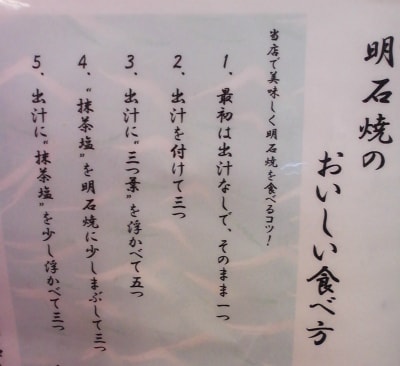 明石焼の
おいしい食べ方
当店で美味しく明石焼を食べるコツ！
1、最初は出汁なしで、そのまま一つ
2、出汁を付けて三つ
3、出汁に“三つ葉”を浮かべて五つ
4、“抹茶塩”を明石焼に少しまぶして三つ
5、出汁に“抹茶塩”を少し浮かべて三つ